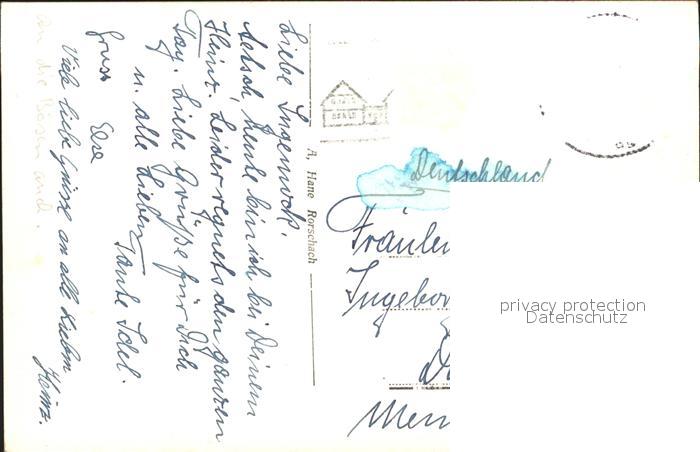 Liebe Ingemock.
Aetsch, heute bin ich bei Deinem
Heinz. Leider regnets den ganzen
Tag. Liebe Grüße für Dich
u. alle Lieben
Tante Idel.
Gruss Else
Viele liebe Grüsse an alle Lieben
Heinz.
an die
A. Hane Rorschach
Deutschland
Fräulein
Ingebor
Men
privacy protection
Datenschutz